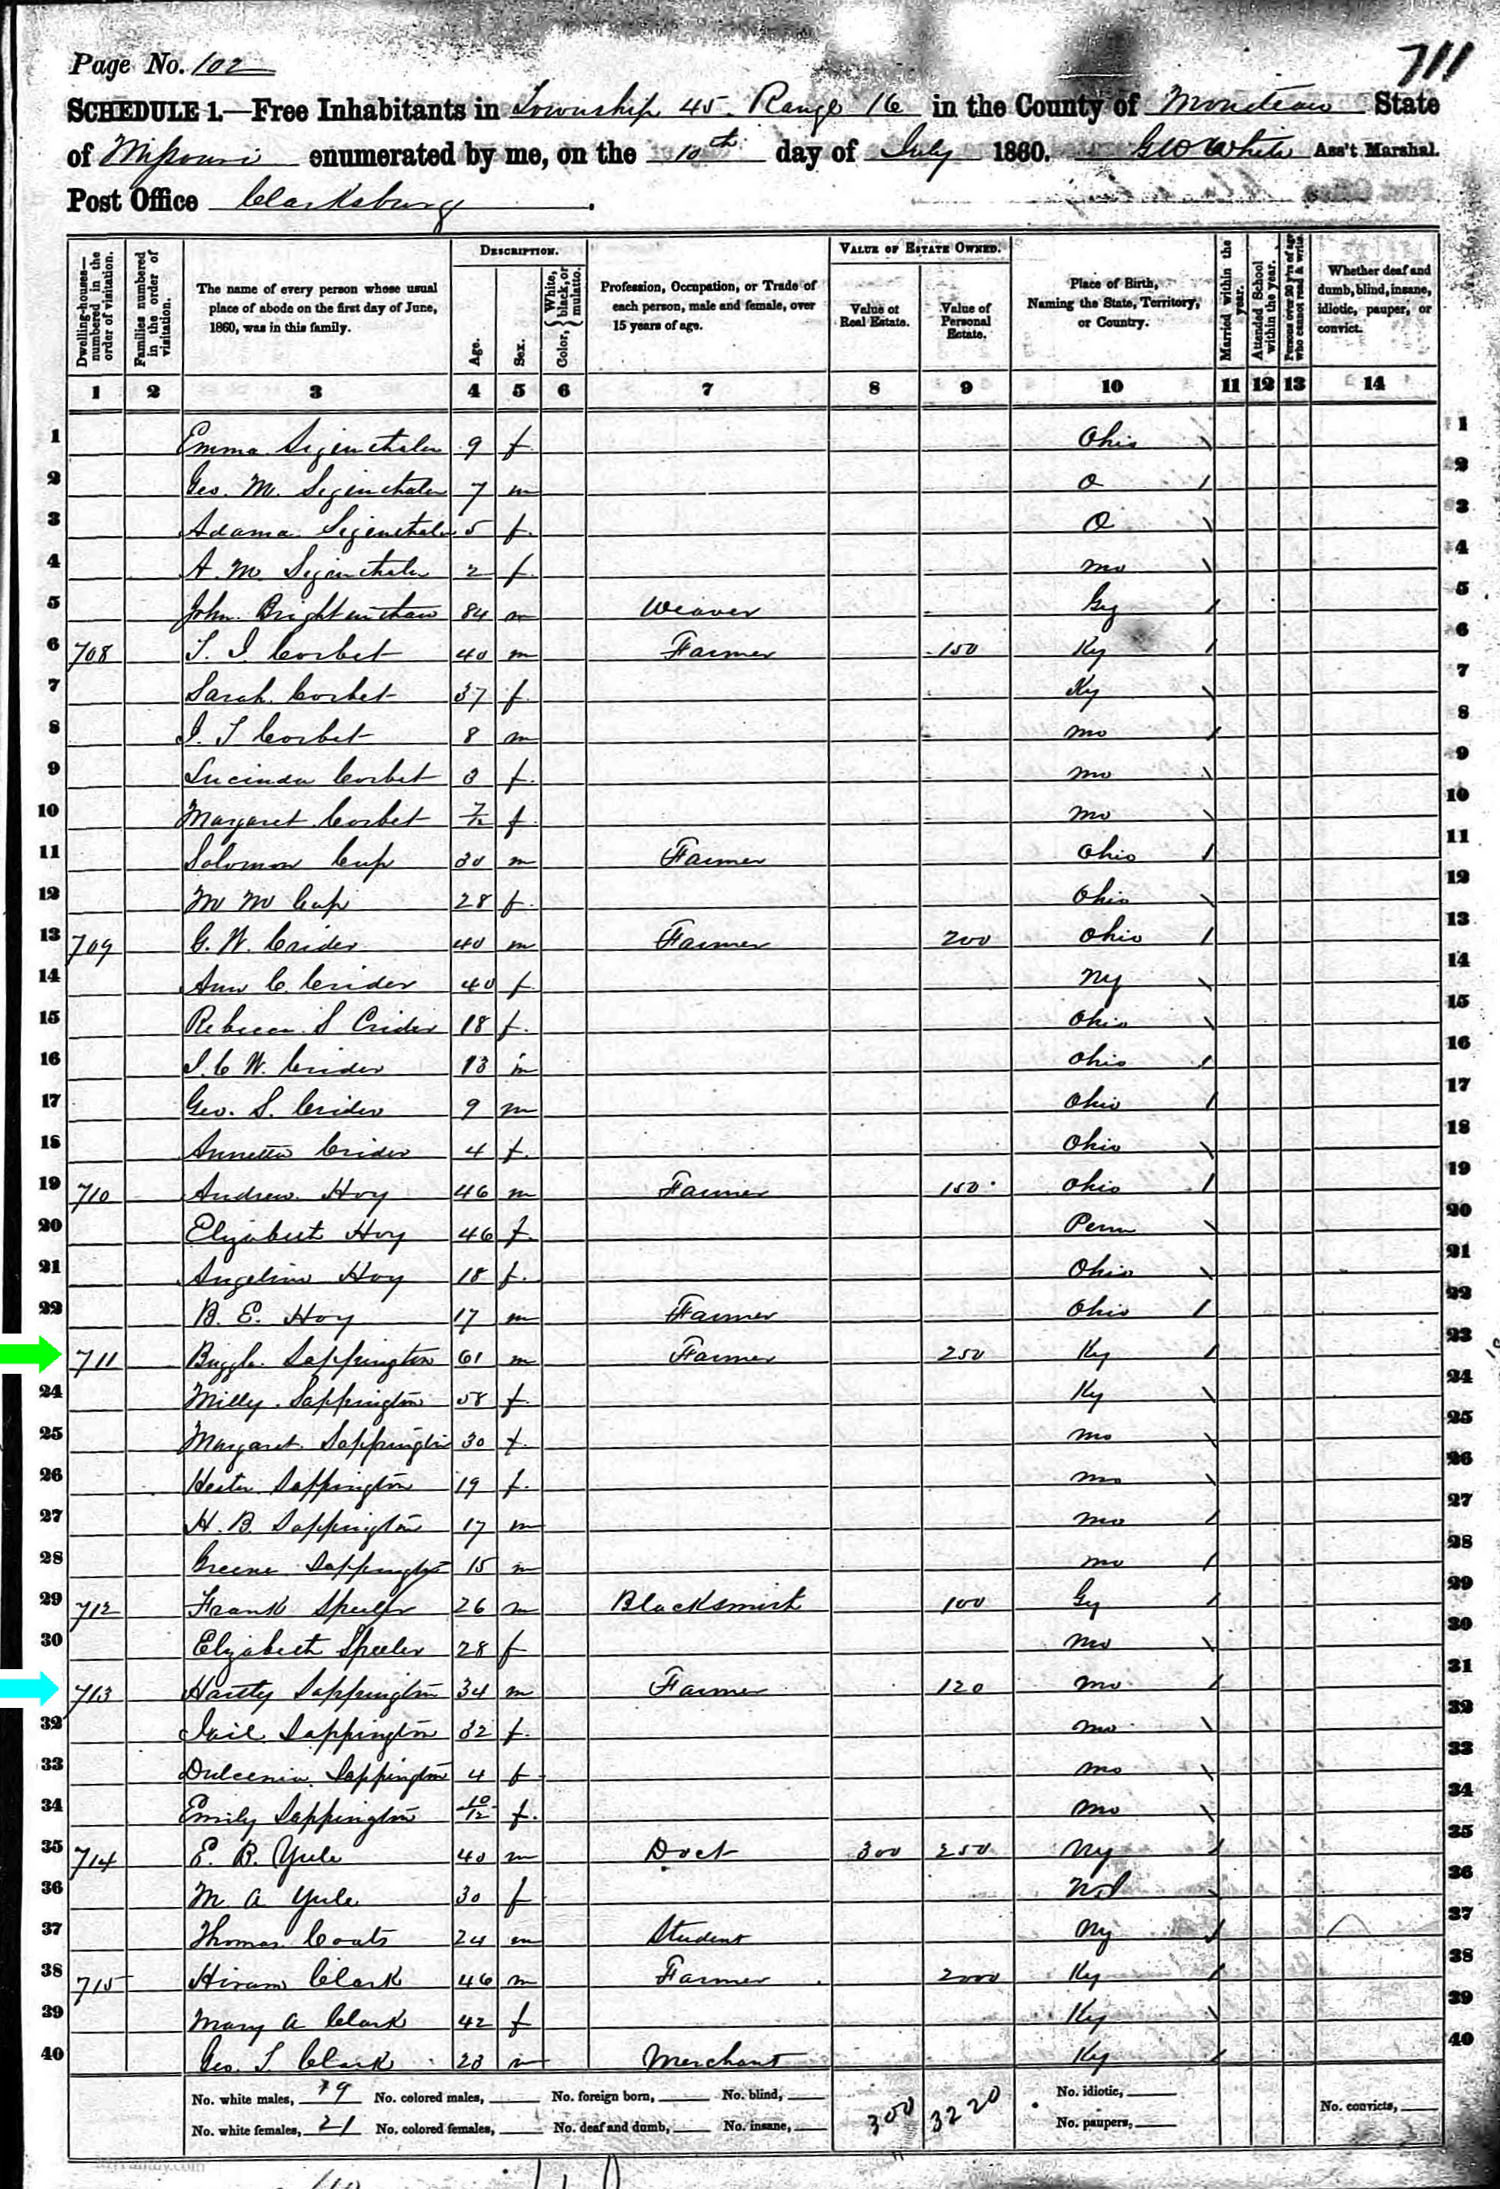 Page No. 102
711
SCHEDULE 1.—Free Inhabitants in Township 45 Range 16 in the County of Moniteau State
of Missouri enumerated by me, on the 10th day of July 1860. Geo White Ass't Marshal.
Post Office Clarksburg.
Dwelling-houses—numbered in the order of visitation.
Families numbered in the order of visitation.
The name of every person whose usual place of abode on the first day of June, 1860, was in this family.
DESCRIPTION.
Age.
Sex.
Color, White, black, or mulatto.
Profession, Occupation, or Trade of each person, male and female, over 15 years of age.
VALUE OF ESTATE OWNED.
Value of Real Estate.
Value of Personal Estate.
Place of Birth, Naming the State, Territory, or Country.
Married within the year.
Attended School within the year.
Persons over 20 y'rs of age who cannot read & write.
Whether deaf and dumb, blind, insane, idiotic, pauper, or convict.
1 2 3 4 5 6 7 8 9 10 11 12 13 14
1 Emma 9 f Ohio 1
2 Geo. M. 7 m O 2
3 Adama 5 f O 3
4 A. M. 2 f Mo 4
5 John 84 m Weaver Gy 5
6 708 Corbet 40 m Farmer 150 Ky 6
7 Sarah Corbet 37 f Ky 7
8 Corbet 8 m Mo 8
9 Lucinda Corbet 3 f Mo 9
10 Margaret Corbet 7/12 f Mo 10
11 Solomon Cup 30 m Farmer Ohio 11
12 M M Cup 28 f Ohio 12
13 709 G. W. Crider 40 m Farmer 200 Ohio 13
14 Ann C. Crider 40 f Ny 14
15 Rebecca S Crider 18 f Ohio 15
16 C W. Crider 13 m Ohio 16
17 Geo. S. Crider 9 m Ohio 17
18 Annetta Crider 4 f Ohio 18
19 710 Andrew Hoy 46 m Farmer 150 Ohio 19
20 Elizabeth Hoy 46 f Penn 20
21 Angelina Hoy 18 f Ohio 21
22 B. E. Hoy 17 m Farmer Ohio 22
23 711 Sappington 61 m Farmer 250 Ky 23
24 Milly Sappington 58 f Ky 24
25 Margaret Sappington 30 f Mo 25
26 Hester Sappington 19 f Mo 26
27 H. B. Sappington 17 m Mo 27
28 Greene Sappington 15 m Mo 28
29 712 Frank Speeler 26 m Blacksmith 100 Gy 29
30 Elizabeth Speeler 28 f Mo 30
31 713 Sappington 34 m Farmer 120 Mo 31
32 Sappington 32 f Mo 32
33 Dulcenia Sappington 4 f Mo 33
34 Emily Sappington 10/12 f Mo 34
35 714 E. B. Yule 40 m Doct 300 250 Ny 35
36 M A Yule 30 f 36
37 Thomas Coats 24 m Student Ny 37
38 715 Hiram Clark 46 m Farmer 2000 Ky 38
39 Mary A Clark 42 f Ky 39
40 Geo. Clark 23 m Merchant Ky 40
No. white males, 19 No. colored males, No. foreign born, No. blind, 300 3220 No. idiotic,
No. white females, 21 No. colored females, No. deaf and dumb, No. insane, No. paupers, No. convicts,